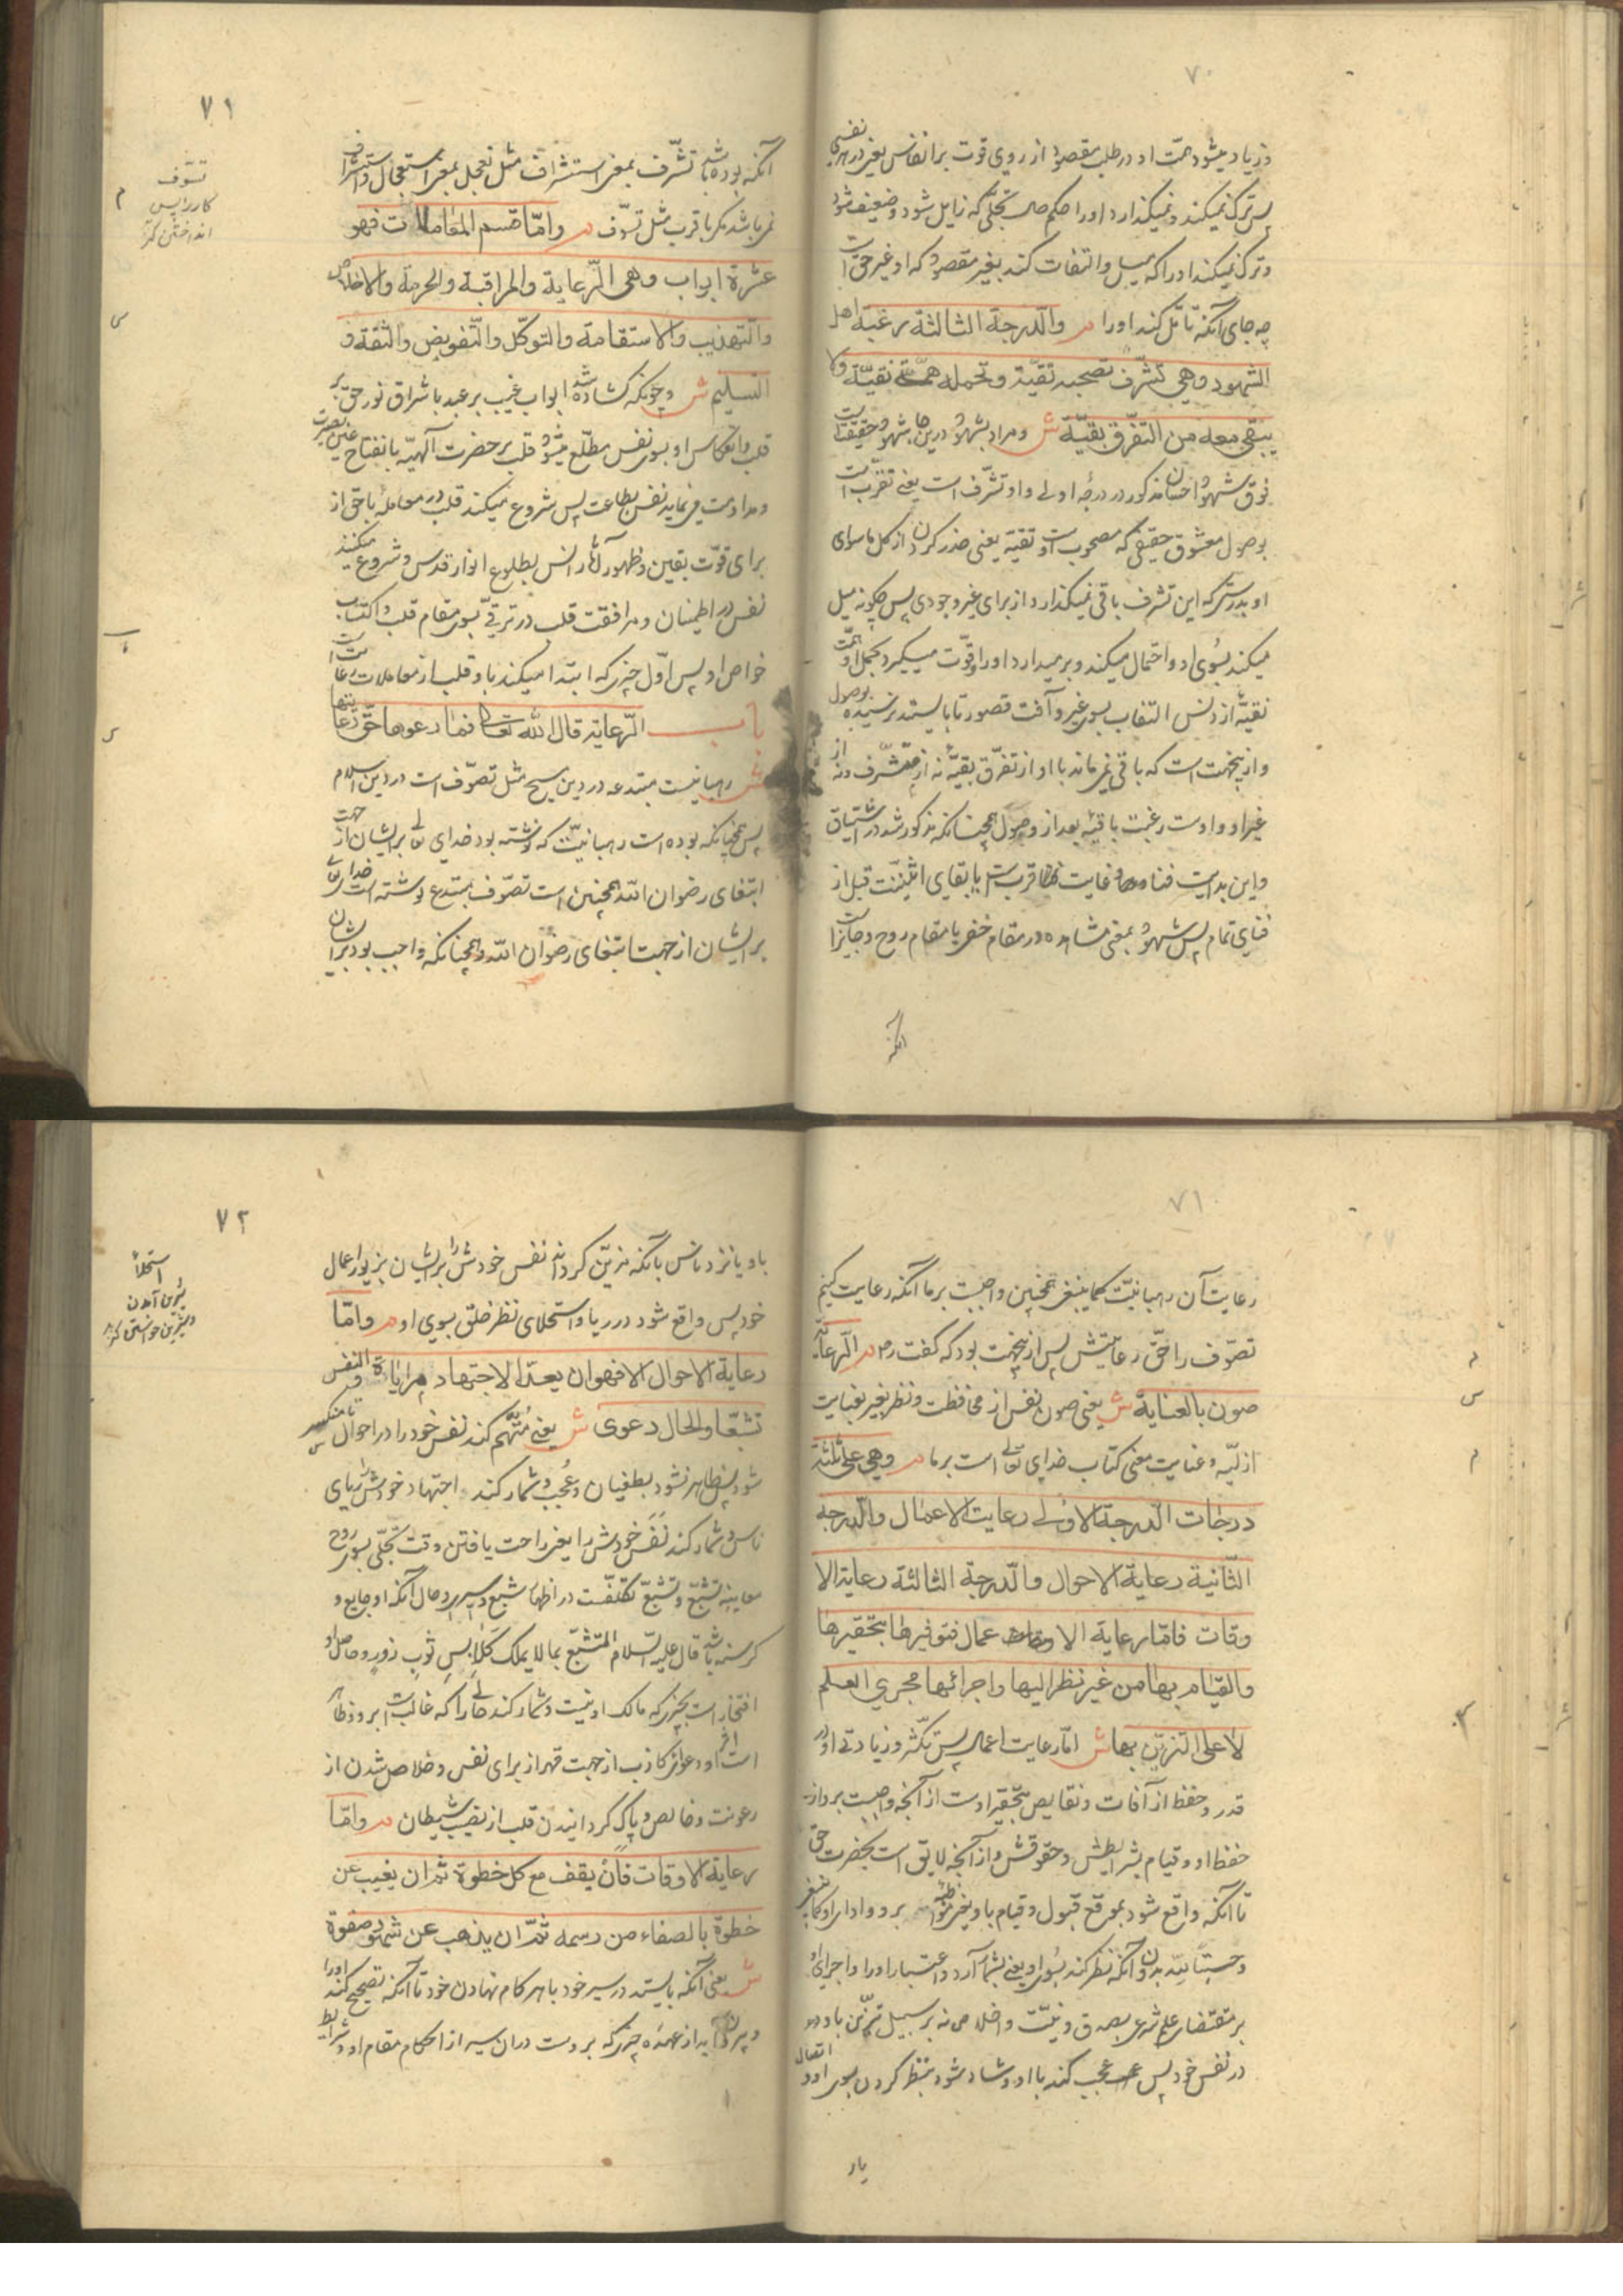 ۷۰
و زیاد میشود همّت او در طلب مقصود از روی قوت بر انفاس یعنی در هر نفسی
پس ترک نمیکند و نمیگذارد او را حکم حال تجلّی که زایل شود و ضعیف شود
و ترک نمیکند او را که میل و التفات کند بغیر مقصود که او غیر حق است
چه جای آنکه تأمّل کند او را م والدرجة الثالثة رغبة اهل
الشهود وهی تشرّف تصحبه تقیّة وتحمله همّة نقیّة ولا
یبقی معه من التفرّق بقیّة ش و مراد بشهود درین جا شهود حقیقتست
فوق شهود احسان مذکور در درجه اولی و او تشرّف است یعنی تقرّب است
بوصول معشوق حقیقی که مصحوب است او تقیّه یعنی حذر کردن از کل ماسوای
او بدرستی که این تشرف باقی نمیگذارد از برای غیر وجودی پس چگونه میل
میکند بسوی او و احتمال میکند و بر میدارد او را و قوّت میگیرد بحمل او همّت
نقیّه از دنس التفات بسوی غیر و آفت قصور تا بایستد نرسیده بوصول
و ازینجهت است که باقی نمیماند با او از تفرّق بقیّه نه از متشرّف و نه از
غیر او و اوست رغبت باقیه بعد از وصول همچنانکه مذکور شد در اشتیاق
و این بدایت فنا و غایت قربست با بقای اثنینیّت قبل از
فنای تمام پس شهود بمعنی مشاهده در مقام خفی یا مقام روح و جایز است
آنکه
۷۱
آنکه بوده باشد تشرّف بمعنی استشراف مثل تعجل بمعنی استعجال و استشراف
نمیباشد مگر با قرب مثل تسوّف م وامّا قسم المعاملات فهو
عشرة ابواب وهی الرّعایة والمراقبة والحرمة والاخلاص
والتهذیب والاستقامة والتوکّل والتّفویض والثقة و
التسلیم ش و چونکه گشاده شد ابواب غیب بر عبد باشراق نور حق بر
قلب و انعکاس او بسوی نفس مطّلع میشود قلب بر حضرت الهیّه بانفتاح عین بصیرت
و مداومت مینماید نفس بطاعت پس شروع میکند قلب در معامله با حق از
برای قوّت یقین و ظهور آثار انس بطلوع انوار قدس و شروع میکند
نفس در اطمینان و مرافقت قلب در ترقّی بسوی مقام قلب و اکتساب
خواص او پس اوّل چیزی که ابتدا میکند باو قلب از معاملات رعایت است
باب الرّعایة قال الله تعالی فما رعوها حقّ رعایتها
ش رهبانیت مبتدعه در دین مسیح مثل تصوّف است در دین اسلام
پس همچنانکه بوده است رهبانیّت که نوشته بود خدای تعالی بر ایشان از جهت
ابتغای رضوان الله همچنین است تصوّف مبتدع نوشته است خدای تعالی
بر ایشان از جهت ابتغای رضوان الله و همچنانکه واجب بود بر ایشان
تسوّف
کار را پس
انداختن کنز
م
س
س
۷۱
رعایت آن رهبانیّت کما ینبغی همچنین واجبست بر ما آنکه رعایت کنیم
تصوّف را حقّ رعایتش پس ازینجهت بود که گفت ره م الرّعایة
صون بالعنایة ش یعنی صون نفس از مخالفت و نظر بغیر بعنایت
ازلیّه و عنایت معنی کتاب خدای تعالی است بر ما م وهی علی ثلثة
درجات الدرجة الاولی رعایت الاعمال والدرجة
الثّانیة رعایة الاحوال والدرجة الثالثة رعایة الا
وقات فامّا رعایة الاعمال فتوفیرها بتحقیرها
والقیام بها من غیر نظر الیها واجرائها مجری العلم
لا علی التزیّن بها ش امّا رعایت اعمال پس تکثّر و زیادتی او در
قدر و حفظ از آفات و نقایص بتحقیر اوست از آنچه واجبست برو از
حفظ او و قیام بشرایطش و حقوقش و از آنچه لایق است بحضرت حق
تا آنکه واقع شود بموقع قبول و قیام باو یعنی مواظبه برو و ادای او کما ینبغی
و حسبتاً لله بدون آنکه نظر کند بسوی او یعنی بشمار آرد و اعتبار او را و اجرای او
بر مقتضای علم شرعی بصدق و نیّت و اخلاص نه بر سبیل تزیّن باو
در نفس خود پس عجب کند با او و شاد شود بنظر کردن بسوی او و
یار
م
س
م
۷۲
باو یا نزد ناس بآنکه مزیّن گرداند نفس خودش را بر ایشان بزیور اعمال
خود پس واقع شود در ریا و استحلای نظر خلق بسوی او م وامّا
رعایة الاحوال فهو ان یعدّ الاجتهاد مرایاة والنفس
تشبّعا والحال دعوی ش یعنی متّهم کند نفس خود را در احوال تا منکسر
شود پس ظاهر نشود بطغیان و عجب و شمار کند اجتهاد خودش را ریای
ناس و شمار کند نفَس خودش را یعنی راحت یافتن وقت تجلّی بسوی روح
معاینه تشبّع و تشبّع تکلفست در اظهار شبع و سیری و حال آنکه او جایع و
گرسنه باشد قال علیه السّلام المتشبّع بما لا یملک کلابس ثوب زور و حاصل او
افتخار است بچیزی که مالک او نیست و شمار کند حالی را که غالبست برو و ظاهر
است اثر او دعوای کاذب از جهت قهر از برای نفس و خلاص شدن از
رعونت و خالص و پاک گردانیدن قلب از نصیب شیطان م وامّا
رعایة الاوقات فان یقف مع کل خطوة ثم ان یغیب عن
خطوة بالصفاء من رسمه ثمّ ان یذهب عن شهود صفوة
ش یعنی آنکه بایستد در سیر خود با هر کام نهادن خود تا آنکه تصحیح کند او را
و بیرون آید از عهده چیزی که بروست در آن سیر از احکام مقام او و شرایط
استحلاء
شیرین آمدن
و شیرین خواستن